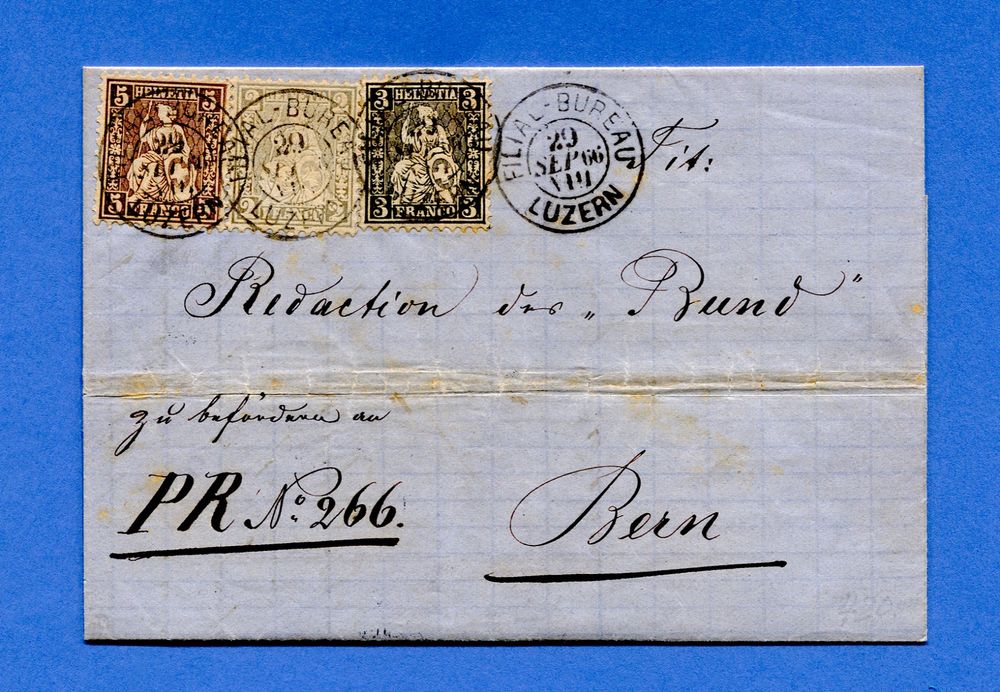 5 HELVETIA 5
5 FRANCO 5
2 2
2 2
3 HELVETIA 3
3 FRANCO 3
FILIAL-BUREAU
29
LUZERN
FILIAL-BUREAU
29 SEP 66
VIII
LUZERN
Tit:
Redaction des „Bund“
zu befördern an
PR No. 266.
Bern